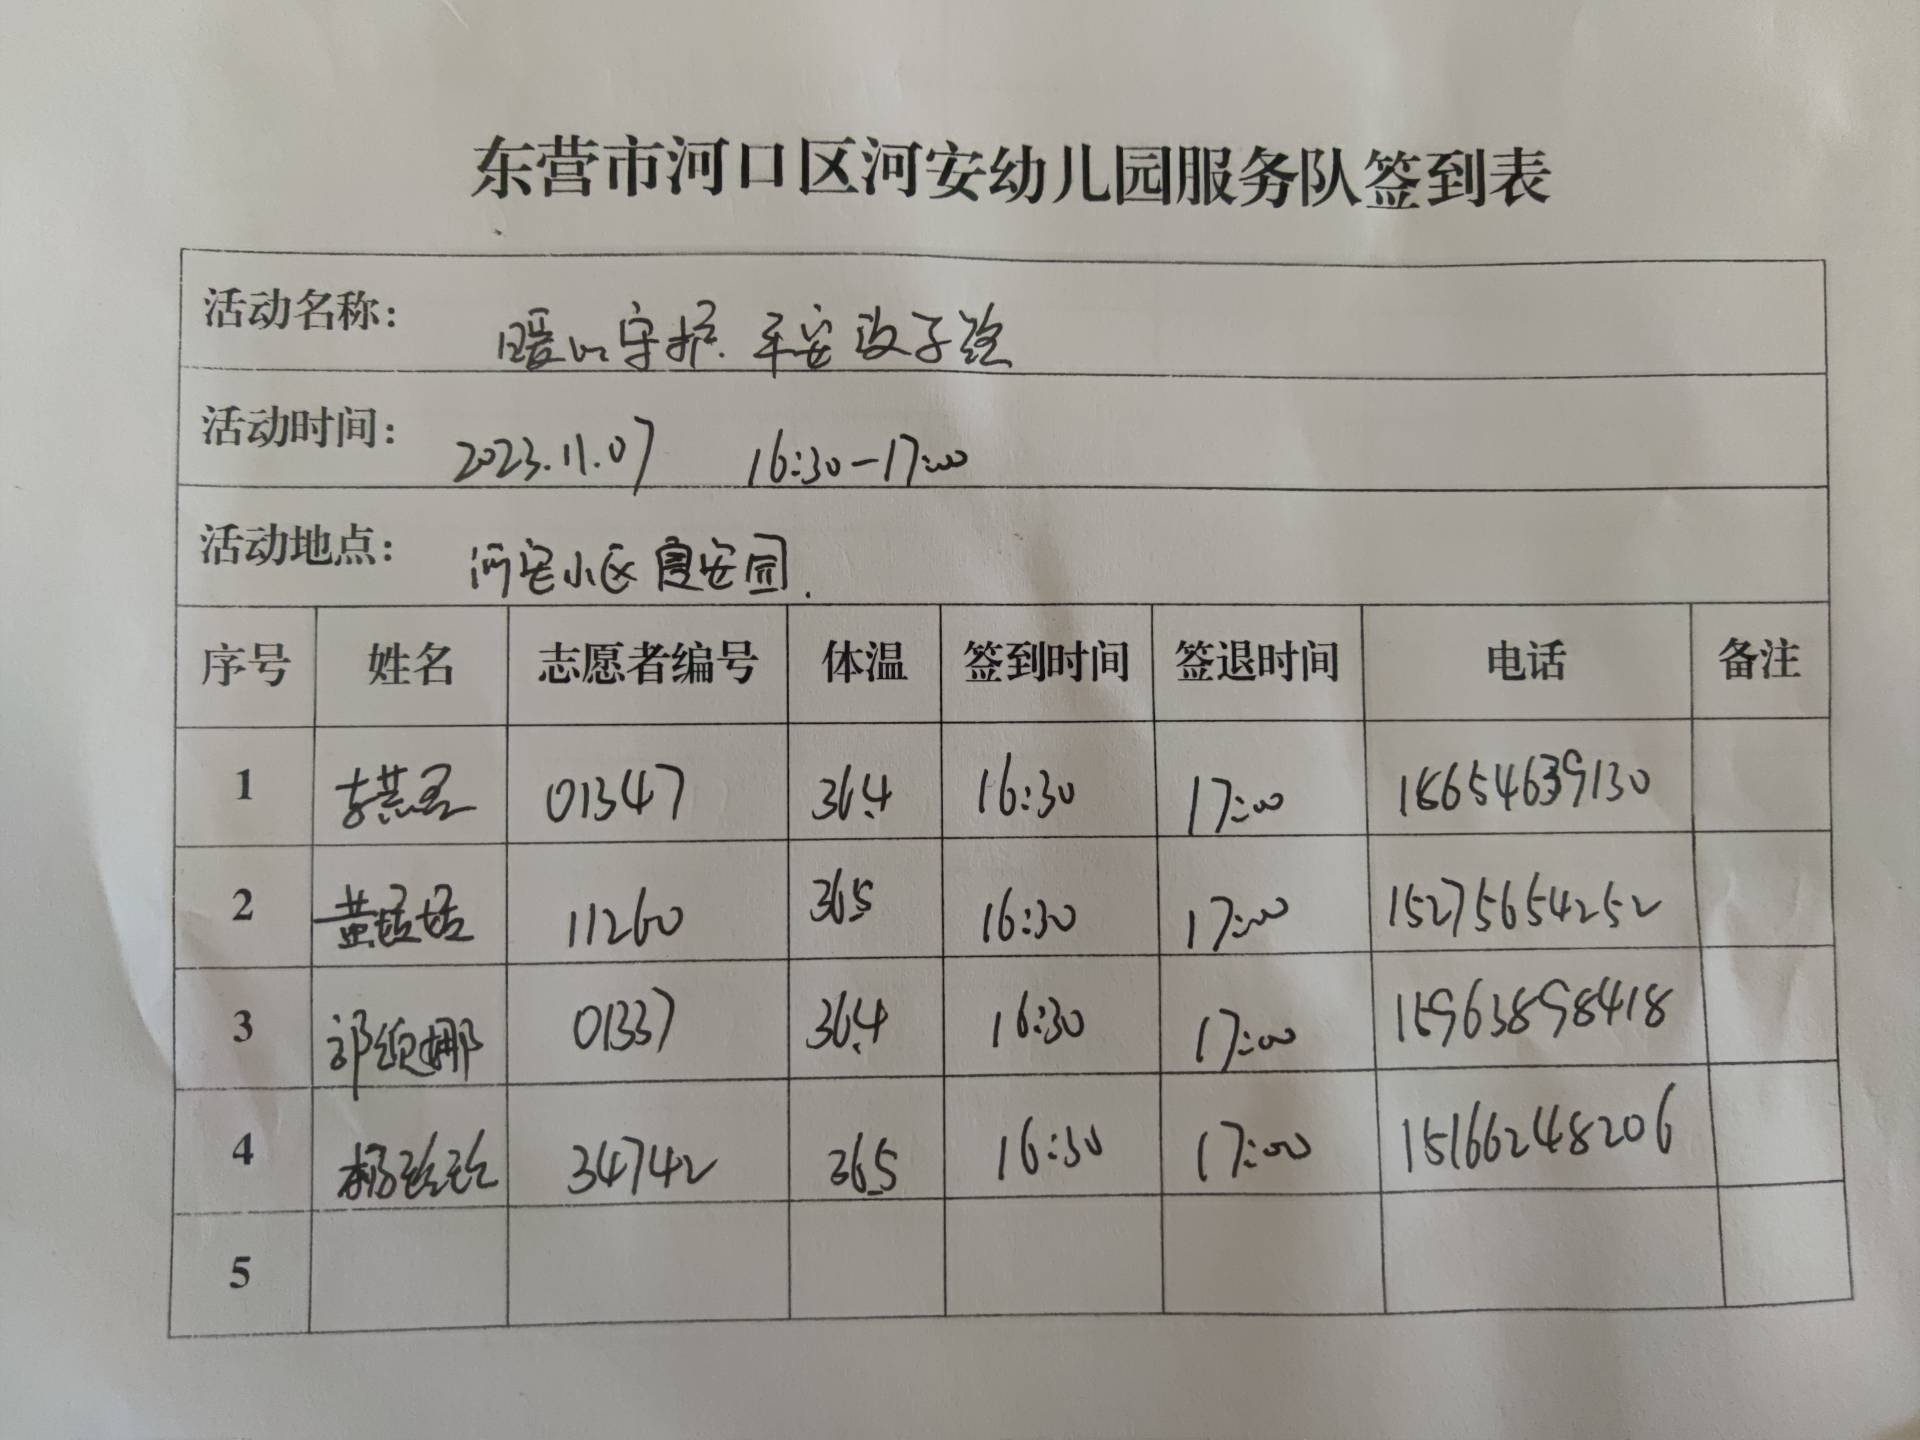 东营市河口区河安幼儿园服务队签到表
活动名称: 暖心守护 平安
活动时间: 2023.11.07 16:30-17:00
活动地点: 河安小区 安园.
序号 姓名 志愿者编号 体温 签到时间 签退时间 电话 备注
1 01347 36.4 16:30 17:00 18654639130
2 黄 11260 36.5 16:30 17:00 15275654252
3 娜 01337 36.4 16:30 17:00 15963898418
4 杨玲玲 34742 36.5 16:30 17:00 15166248206
5